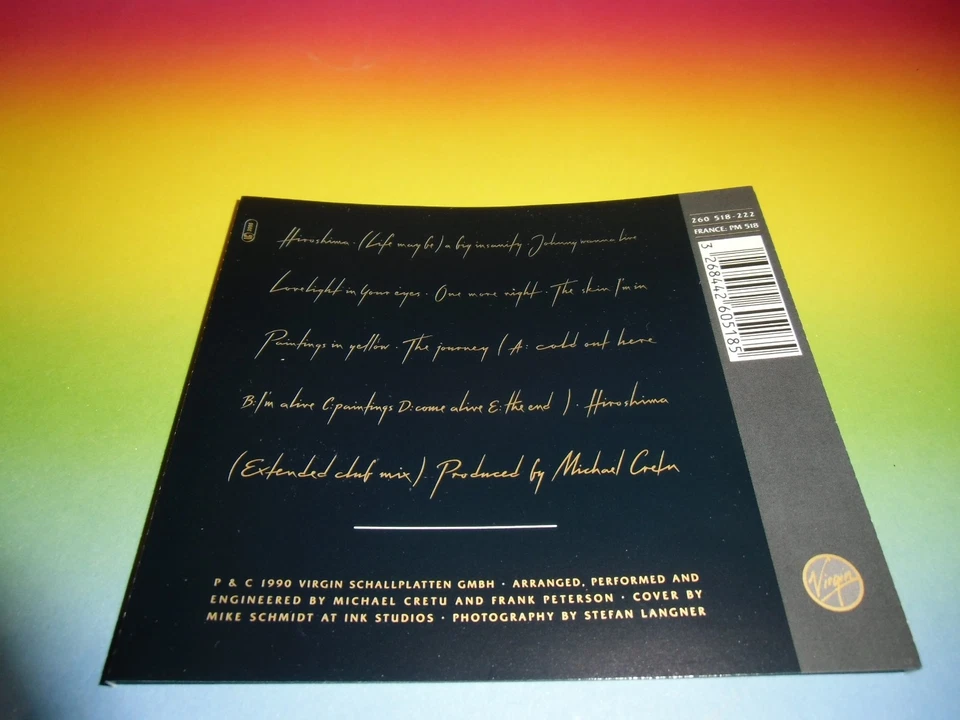 Hiroshima · (Life may be) a big insanity · Johnny wanna live
Lovelight in your eyes · One more night · The skin I'm in
Paintings in yellow · The journey ( A: cold out here
B: I'm alive C: paintings D: come alive E: the end ) · Hiroshima
(Extended club mix) · Produced by Michael Cretu
P & C 1990 VIRGIN SCHALLPLATTEN GMBH · ARRANGED, PERFORMED AND
ENGINEERED BY MICHAEL CRETU AND FRANK PETERSON · COVER BY
MIKE SCHMIDT AT INK STUDIOS · PHOTOGRAPHY BY STEFAN LANGNER
260 518-222
FRANCE: PM 518
3 268442 605185
Virgin